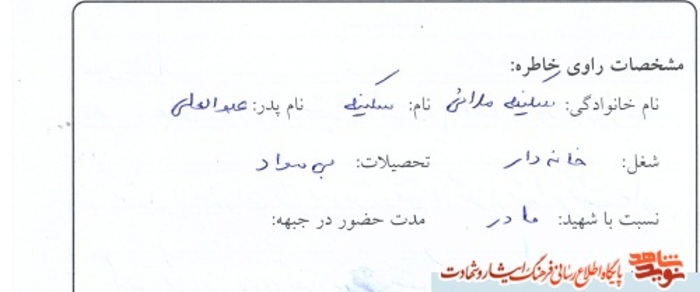 مشخصات راوی خاطره:
نام خانوادگی: سکینه ملائی نام: سکینه نام پدر: عبدالعلی
شغل: خانه دار تحصیلات: بی سواد
نسبت با شهید: مادر مدت حضور در جبهه:
نوید شاهد پایگاه اطلاع رسانی فرهنگ ایثار و شهادت